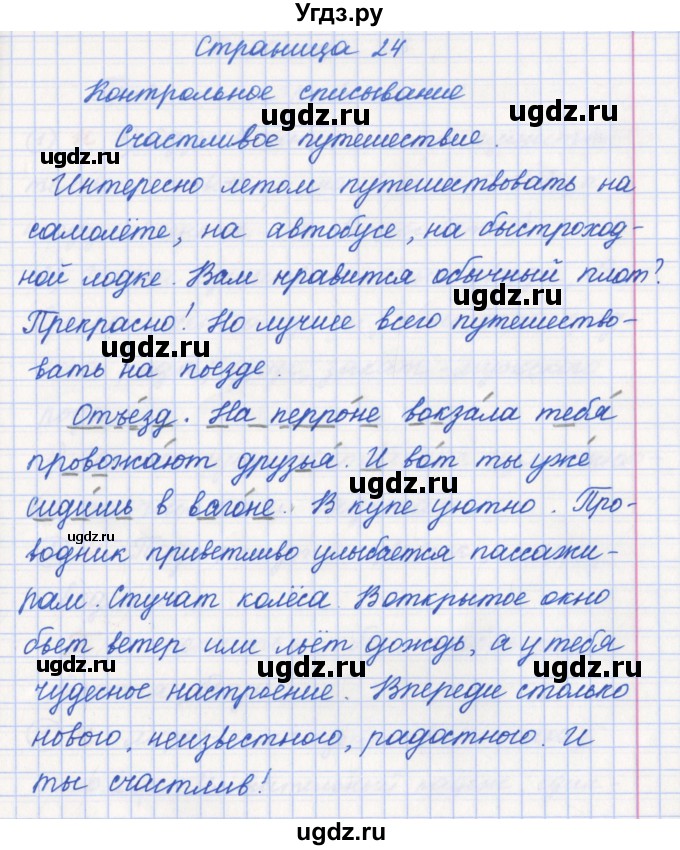 Угдз.ру
Страница 24
Контрольное списывание
ugdz.ru ugdz.ru
Счастливое путешествие.
ugdz.ru
Интересно летом путешествовать на
самолёте, на автобусе, на быстроход-
ной лодке. Вам нравится обычный плот?
ugdz.ru
Прекрасно! Но лучше всего путешество-
ugdz.ru ugdz.ru
вать на поезде.
Отъе́зд. На перро́не вокза́ла тебя́
ugdz.ru
провожа́ют друзья́. И во́т ты уже́
ugdz.ru
сиди́шь в ваго́не. В купе уютно. Про-
ugdz.ru
водник приветливо улыбается пассажи-
рам. Стучат колёса. В открытое окно
бьет ветер или льёт дождь, а у тебя
ugdz.ru ugdz.ru ugdz.ru
чудесное настроение. Впереди столько
нового, неизвестного, радостного. И
ты счастлив!
ugdz.ru
ugdz.ru